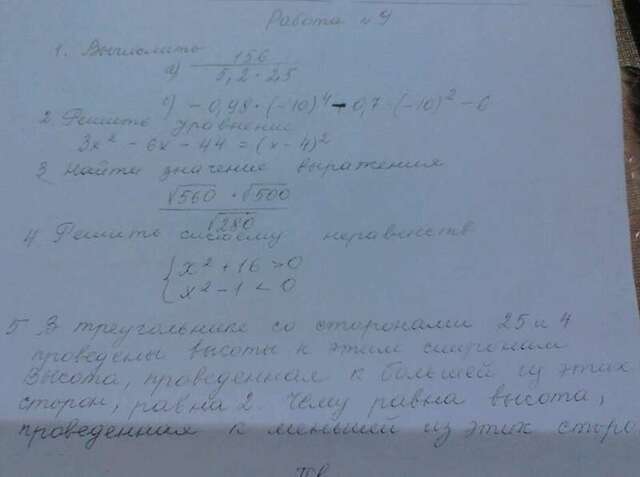 Работа №9
1. Вычислить
а) 156
5,2 · 2,5
с) - 0,98 · (-10)⁴ - 0,7 · (-10)² - 6
2. Решить уравнение
3x² - 6x - 44 = (x - 4)²
3 Найти значение выражения
√560 · √500
√280
4 Решить систему неравенств
{ x² + 16 > 0
{ x² - 1 < 0
5 В треугольнике со сторонами 25 и 4
проведены высоты к этим сторонам
Высота, проведенная к большей из этих
сторон, равна 2. Чему равна высота,
проведенная к меньшей из этих сторо